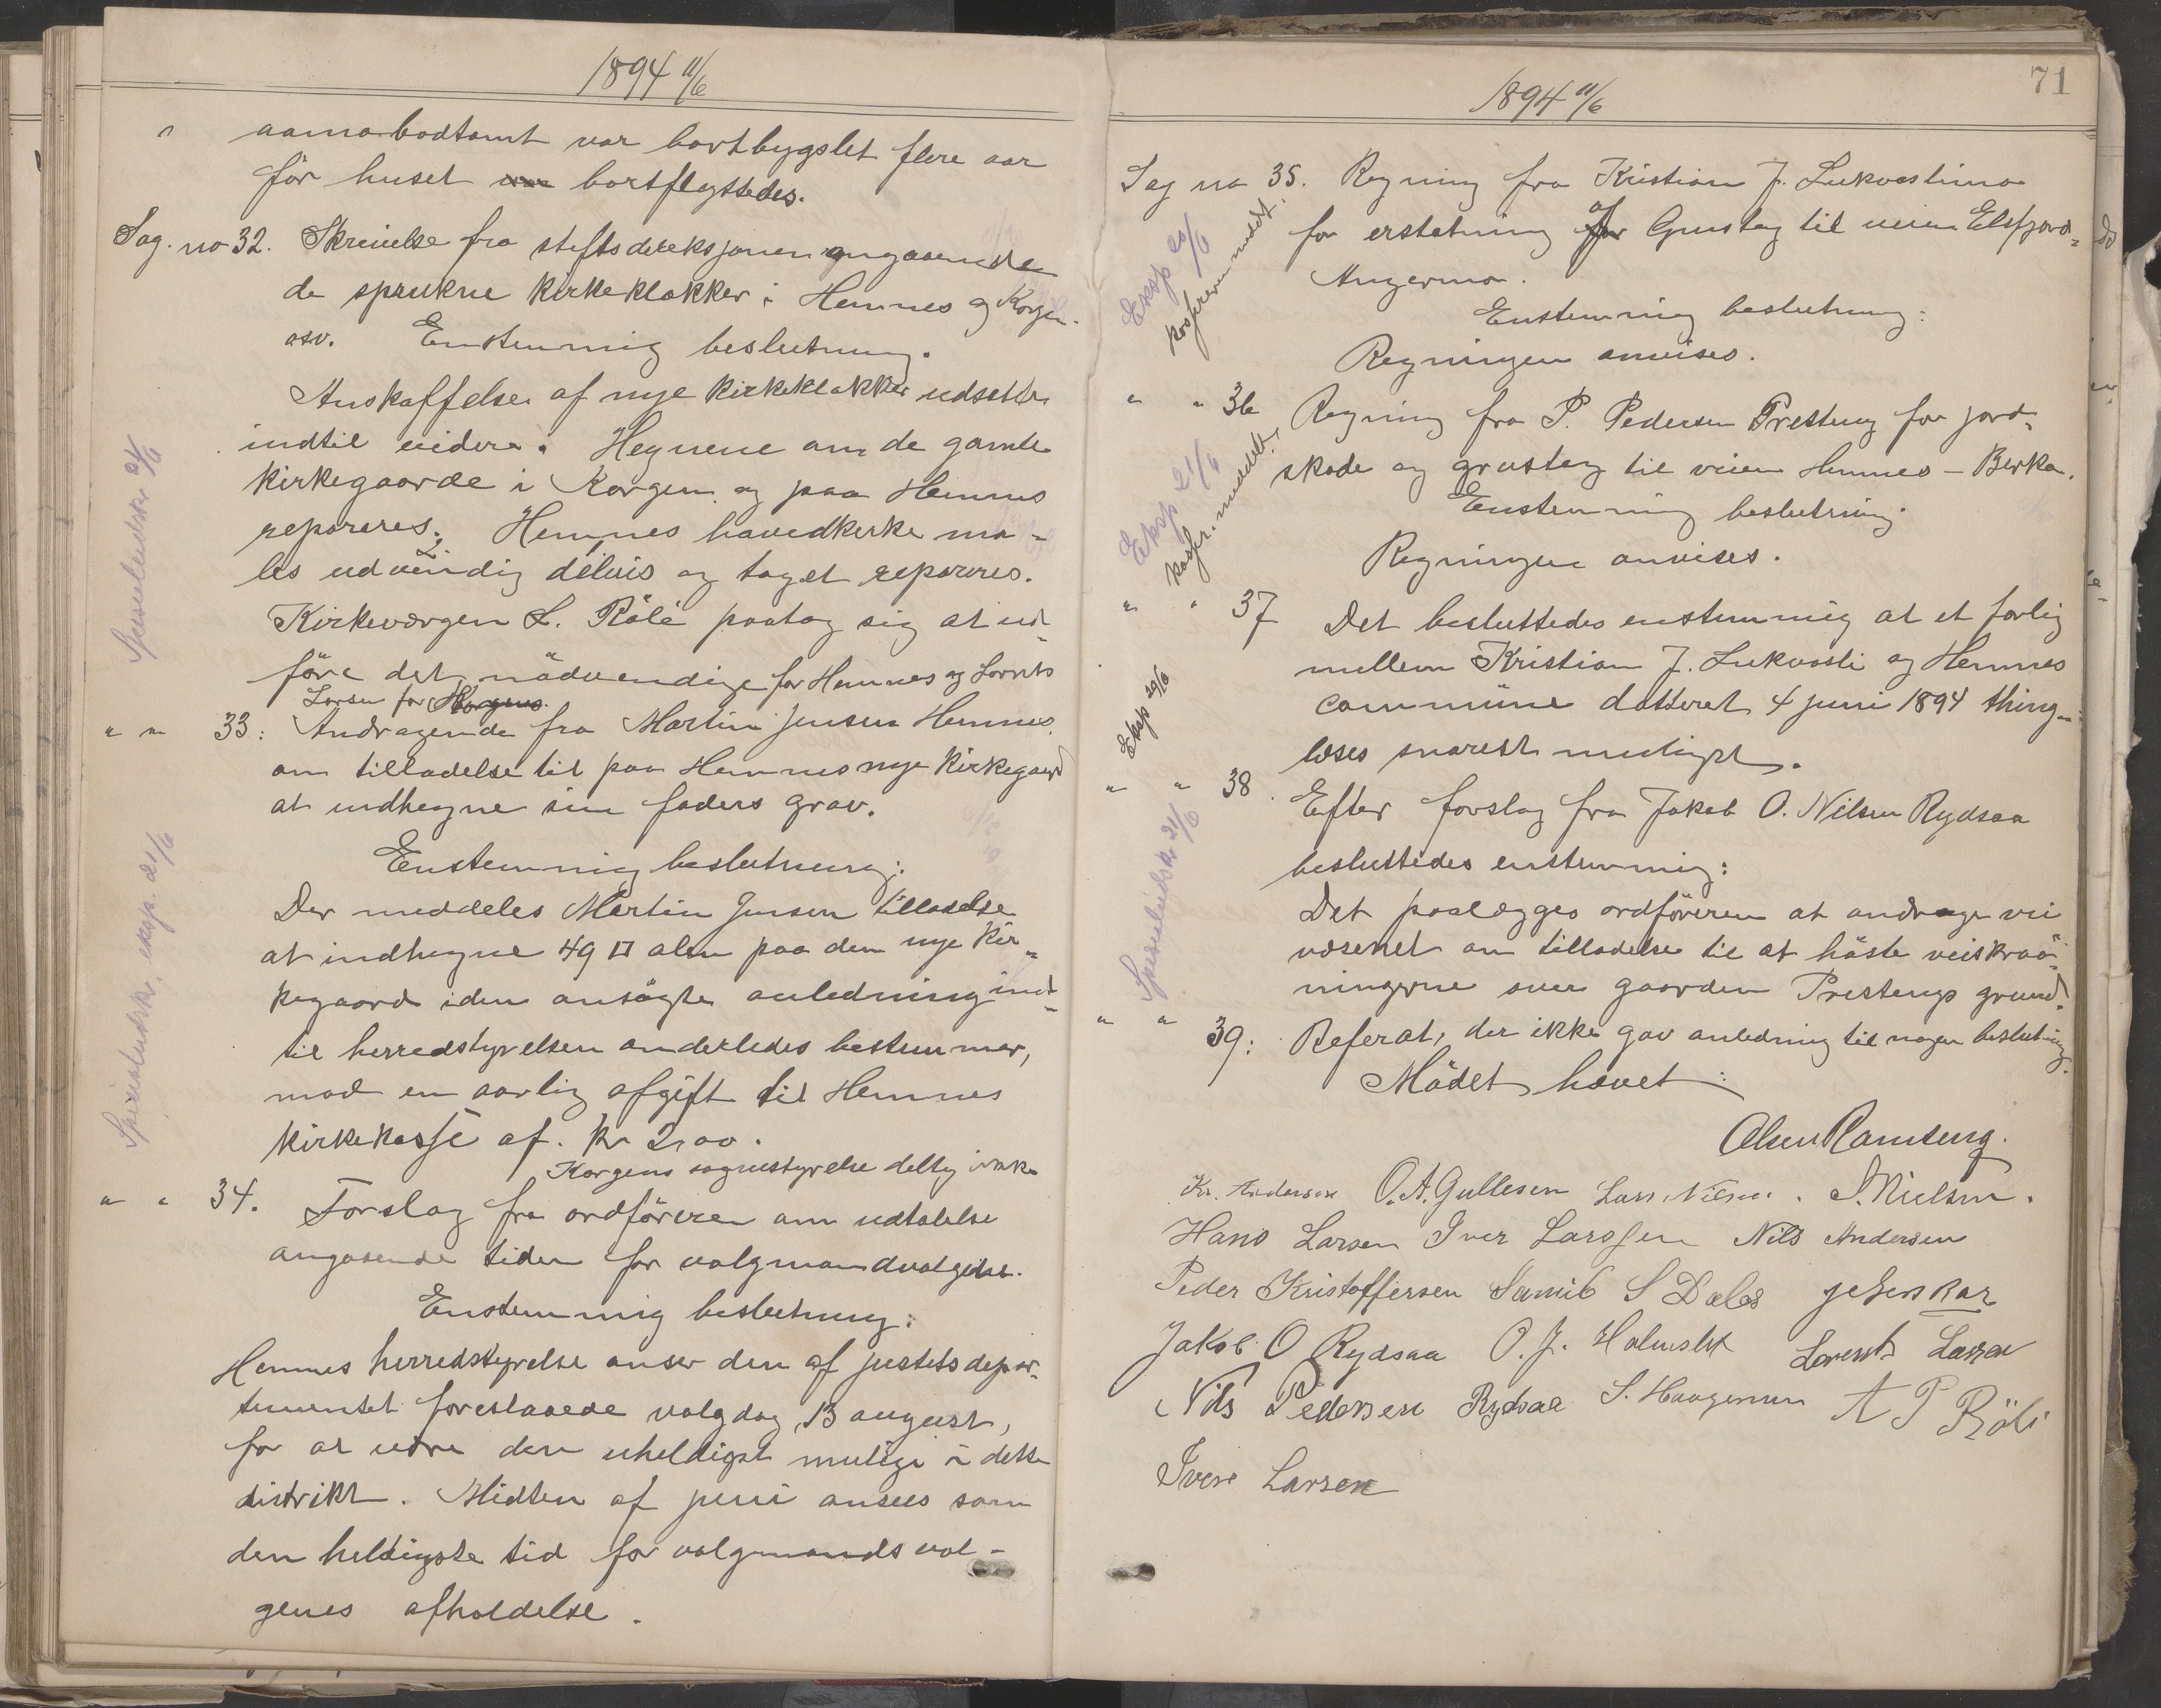 1894 11/6
aamobodtomt var bortbygslet flere aar
før huset var bortflyttedes.
Sag. no 32. Skrivelse fra stiftsdireksjonen angaaende
de sprukne kirkeklokker i Hemnes og Korgen
osv. Enstemmig beslutning.
Anskaffelse af nye kirkeklokker udsettes
indtil videre. Hegnene om de gamle
kirkegaarde i Korgen og paa Hemnes
repareres. Hemnes hovedkirke ma-
les udvendig delvis og taget repareres.
Kirkeværgen L. Röli paatog sig at ud-
före det nödvendige for Hemnes og Lornts
Larsen for Korgens.
" " 33: Andragende fra Martin Jensen Hemnes
om tilladelse til paa Hemnes nye kirkegaard
at indhegne sin faders grav.
Enstemmig beslutning:
Der meddeles Martin Jensen tilladelse
at indhegne 49 □ alen paa den nye kir-
kegaard i den ansögte anledning ind-
til herredstyrelsen anderledes bestemmer,
mod en aarlig afgift til Hemnes
kirkekasse af. kr 2,00.
Korgens sognestyrelse deltog ikke
" " 34. Forslag fra ordföreren om udtalelse
angaaende tiden for valgmandvalgene.
Enstemmig beslutning:
Hemnes herredstyrelse anser den af justitsdepar-
tementet foreslaaede valgdag 13 august,
for at være den uheldigst mulige i dette
distrikt. Midten af juni ansees som
den heldigste tid for valgmandsval-
genes afholdelse.
Specialudskr. 21/6
Specialudskr. eksp. 21/6
71
1894 11/6
Sag no 35. Regning fra Kristian J. Lukvaslimo
for erstatning for af Grustag til veien Elsfjord-
Angermo.
Enstemmig beslutning:
Regningen anvises.
Eksp 20/6
kasfereren meddt.
" " 36 Regning fra P. Pedersen Presteng for jord-
skade og grustag til veien Hemnes - Berka.
Enstemmig beslutning
Regningen anvises.
Eksp 21/6
kasfer. meddelt.
" " 37 Det besluttedes enstemmig at et forlig
mellem Kristian J. Lukvasli og Hemnes
commune datteret 4 juni 1894 thing-
læses snarest muligt.
Eksp 20/6
" " 38. Efter forslag fra Jakob O. Nilsen Rydsaa
besluttedes enstemmig:
Det paalægges ordföreren at andrage vei
væsenet om tilladelse til at höste veiskraa-
ningerne over gaarden Prestengs grund.
Specialudskr 21/6
" " 39: Referat, der ikke gav anledning til nogen beslutning.
Mödet hævet:
Olsen Ramseng.
Kr. Andersen O. A. Gullesen Lars Nilsen. S. Nielsen.
Hans Larsen Iver Larssen Nils Andersen
Peder Kristoffersen S Dalos
Jakob O Rydsaa O. J. Holmslet Lorents Larsen
Nils Pedersen Rydsaa S. Haagensen A P Röli
Iver Larsen